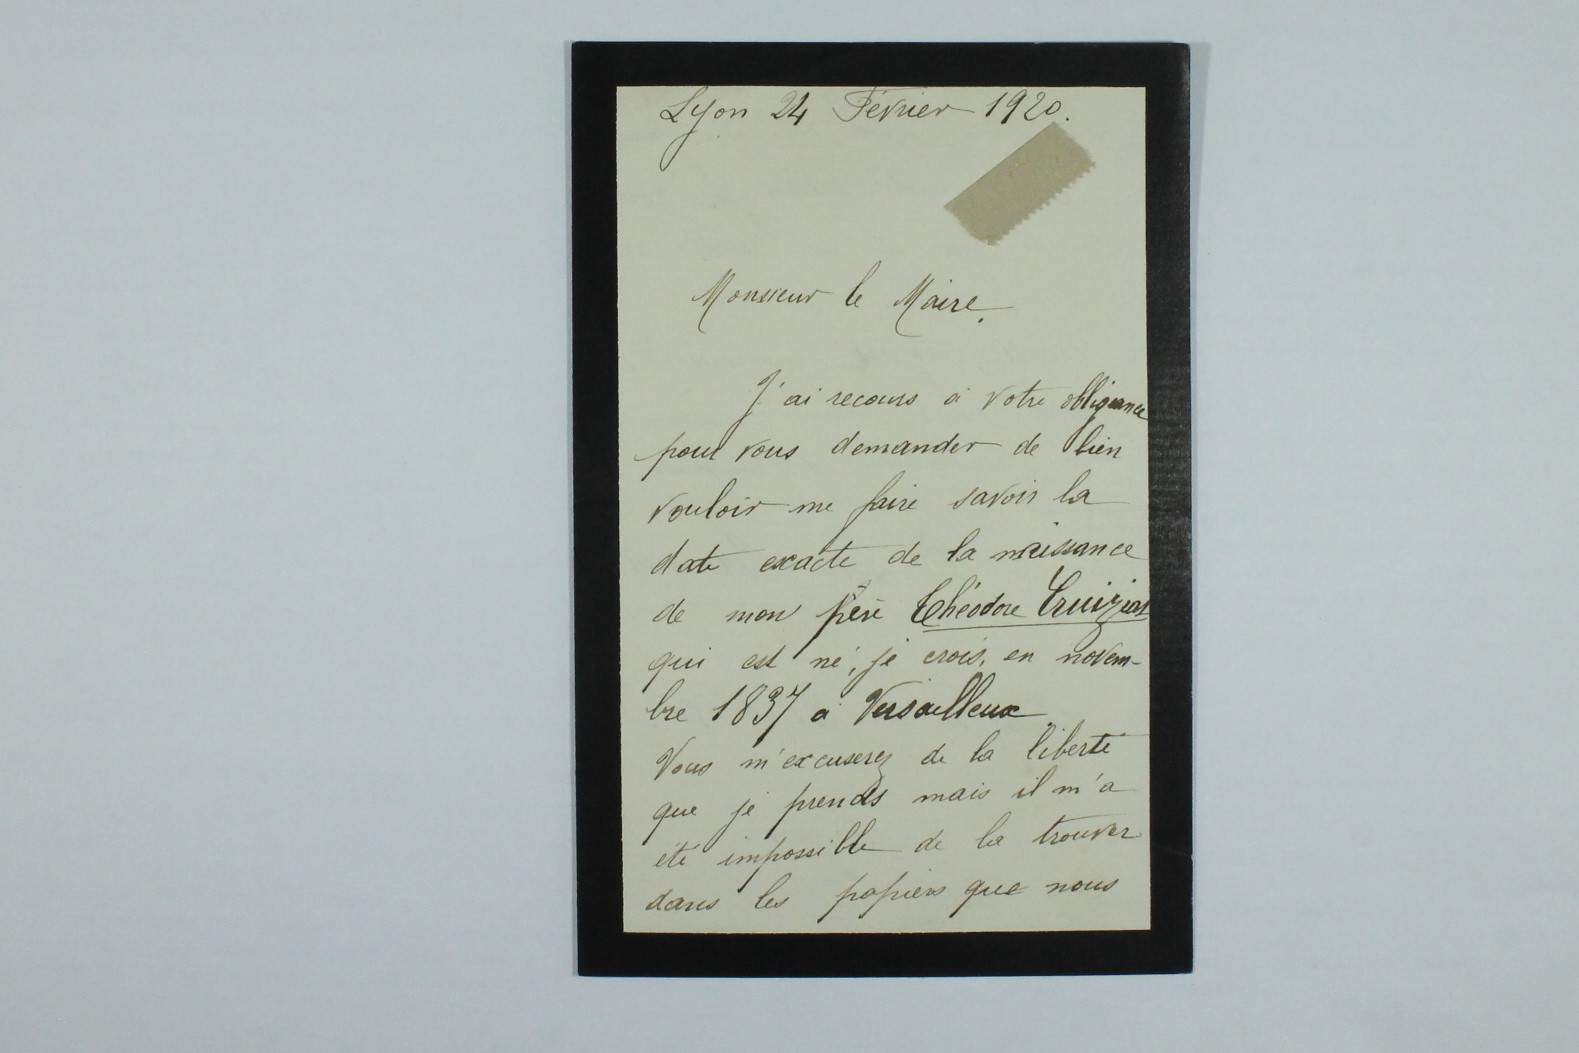 Lyon 24 Février 1920.
Monsieur le Maire.
J'ai recours à votre obligeance
pour vous demander de bien
vouloir me faire savoir la
date exacte de la naissance
de mon père Théodore
qui est né, je crois, en novem-
bre 1837 à Versailleux
Vous m'excuserez de la liberté
que je prends mais il m'a
été impossible de la trouver
dans les papiers que nous